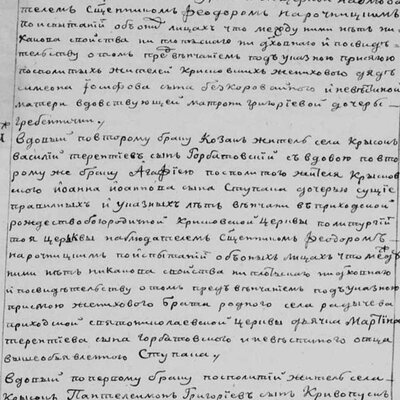 телемъ Священникомъ Феодоромъ нарочницкимъ
по испытаніи обоихъ лицахъ что между ними нетъ ни
каковa свойства ни плотскаго ни духовнаго и по свидѣ
телству о томъ предъ венчаніемъ подъ указною присягою
посполитыхъ жителей жениховаго дядѣ
симеона сына и невѣстиной
матери вдовствующей григориевой дочеры
Вдовый повторому браку Козакъ житель села Крысокъ
василий терентиевъ сынъ Горбатовский съ вдовою повто
рому же браку Агафиею посполитого жителя Крысков
скою иоанна иоаннова сына Ступака дочерью сущие
правилныхъ и указныхъ летъ венчани въ приходской
рождествобогородичной Крисковской Церквы по литургий
тоя Церквы наблюдателемъ Священникомъ Феодоромъ
нарочницкимъ по испытаний обоихъ лицахъ что меж
ними нетъ никакова свойства ни плотскаго ни духовнаго
и по свидѣтелству о томъ предъ венчаниемъ подъ указною
присягою женихового брата родного села
приходской святониколаевской Церквы дячка Мартина
терентиева сына Горбатовского и невѣстиного отца
вышеобъявленного Ступака
Вдовый по первому браку посполитий житель села
Крысокъ Пантелеимонъ Григориевъ сынъ